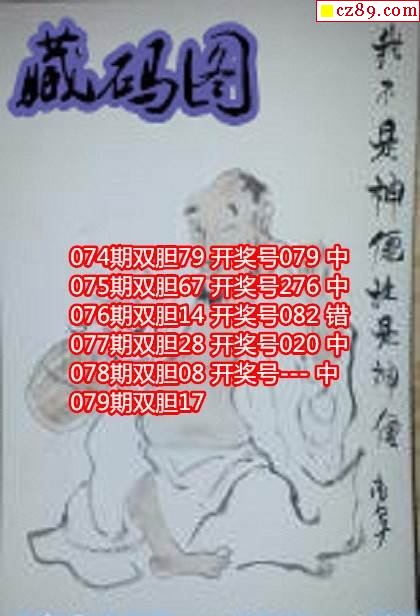 cz89.com
藏码图
我不是神但比是神侄
074期双胆79 开奖号079 中
075期双胆67 开奖号276 中
076期双胆14 开奖号082 错
077期双胆28 开奖号020 中
078期双胆08 开奖号--- 中
079期双胆17